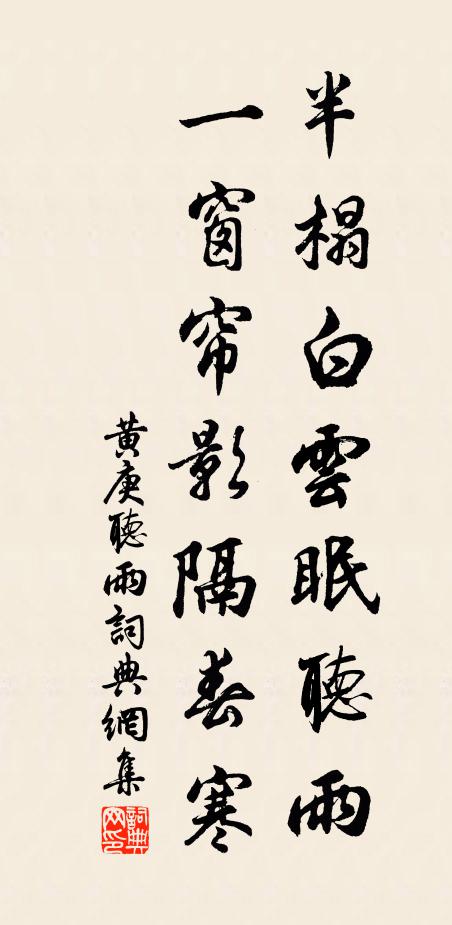 半榻白雲眠聽雨
一窗帘影隔春寒
黃庚聽雨詞典網集
詞典網印